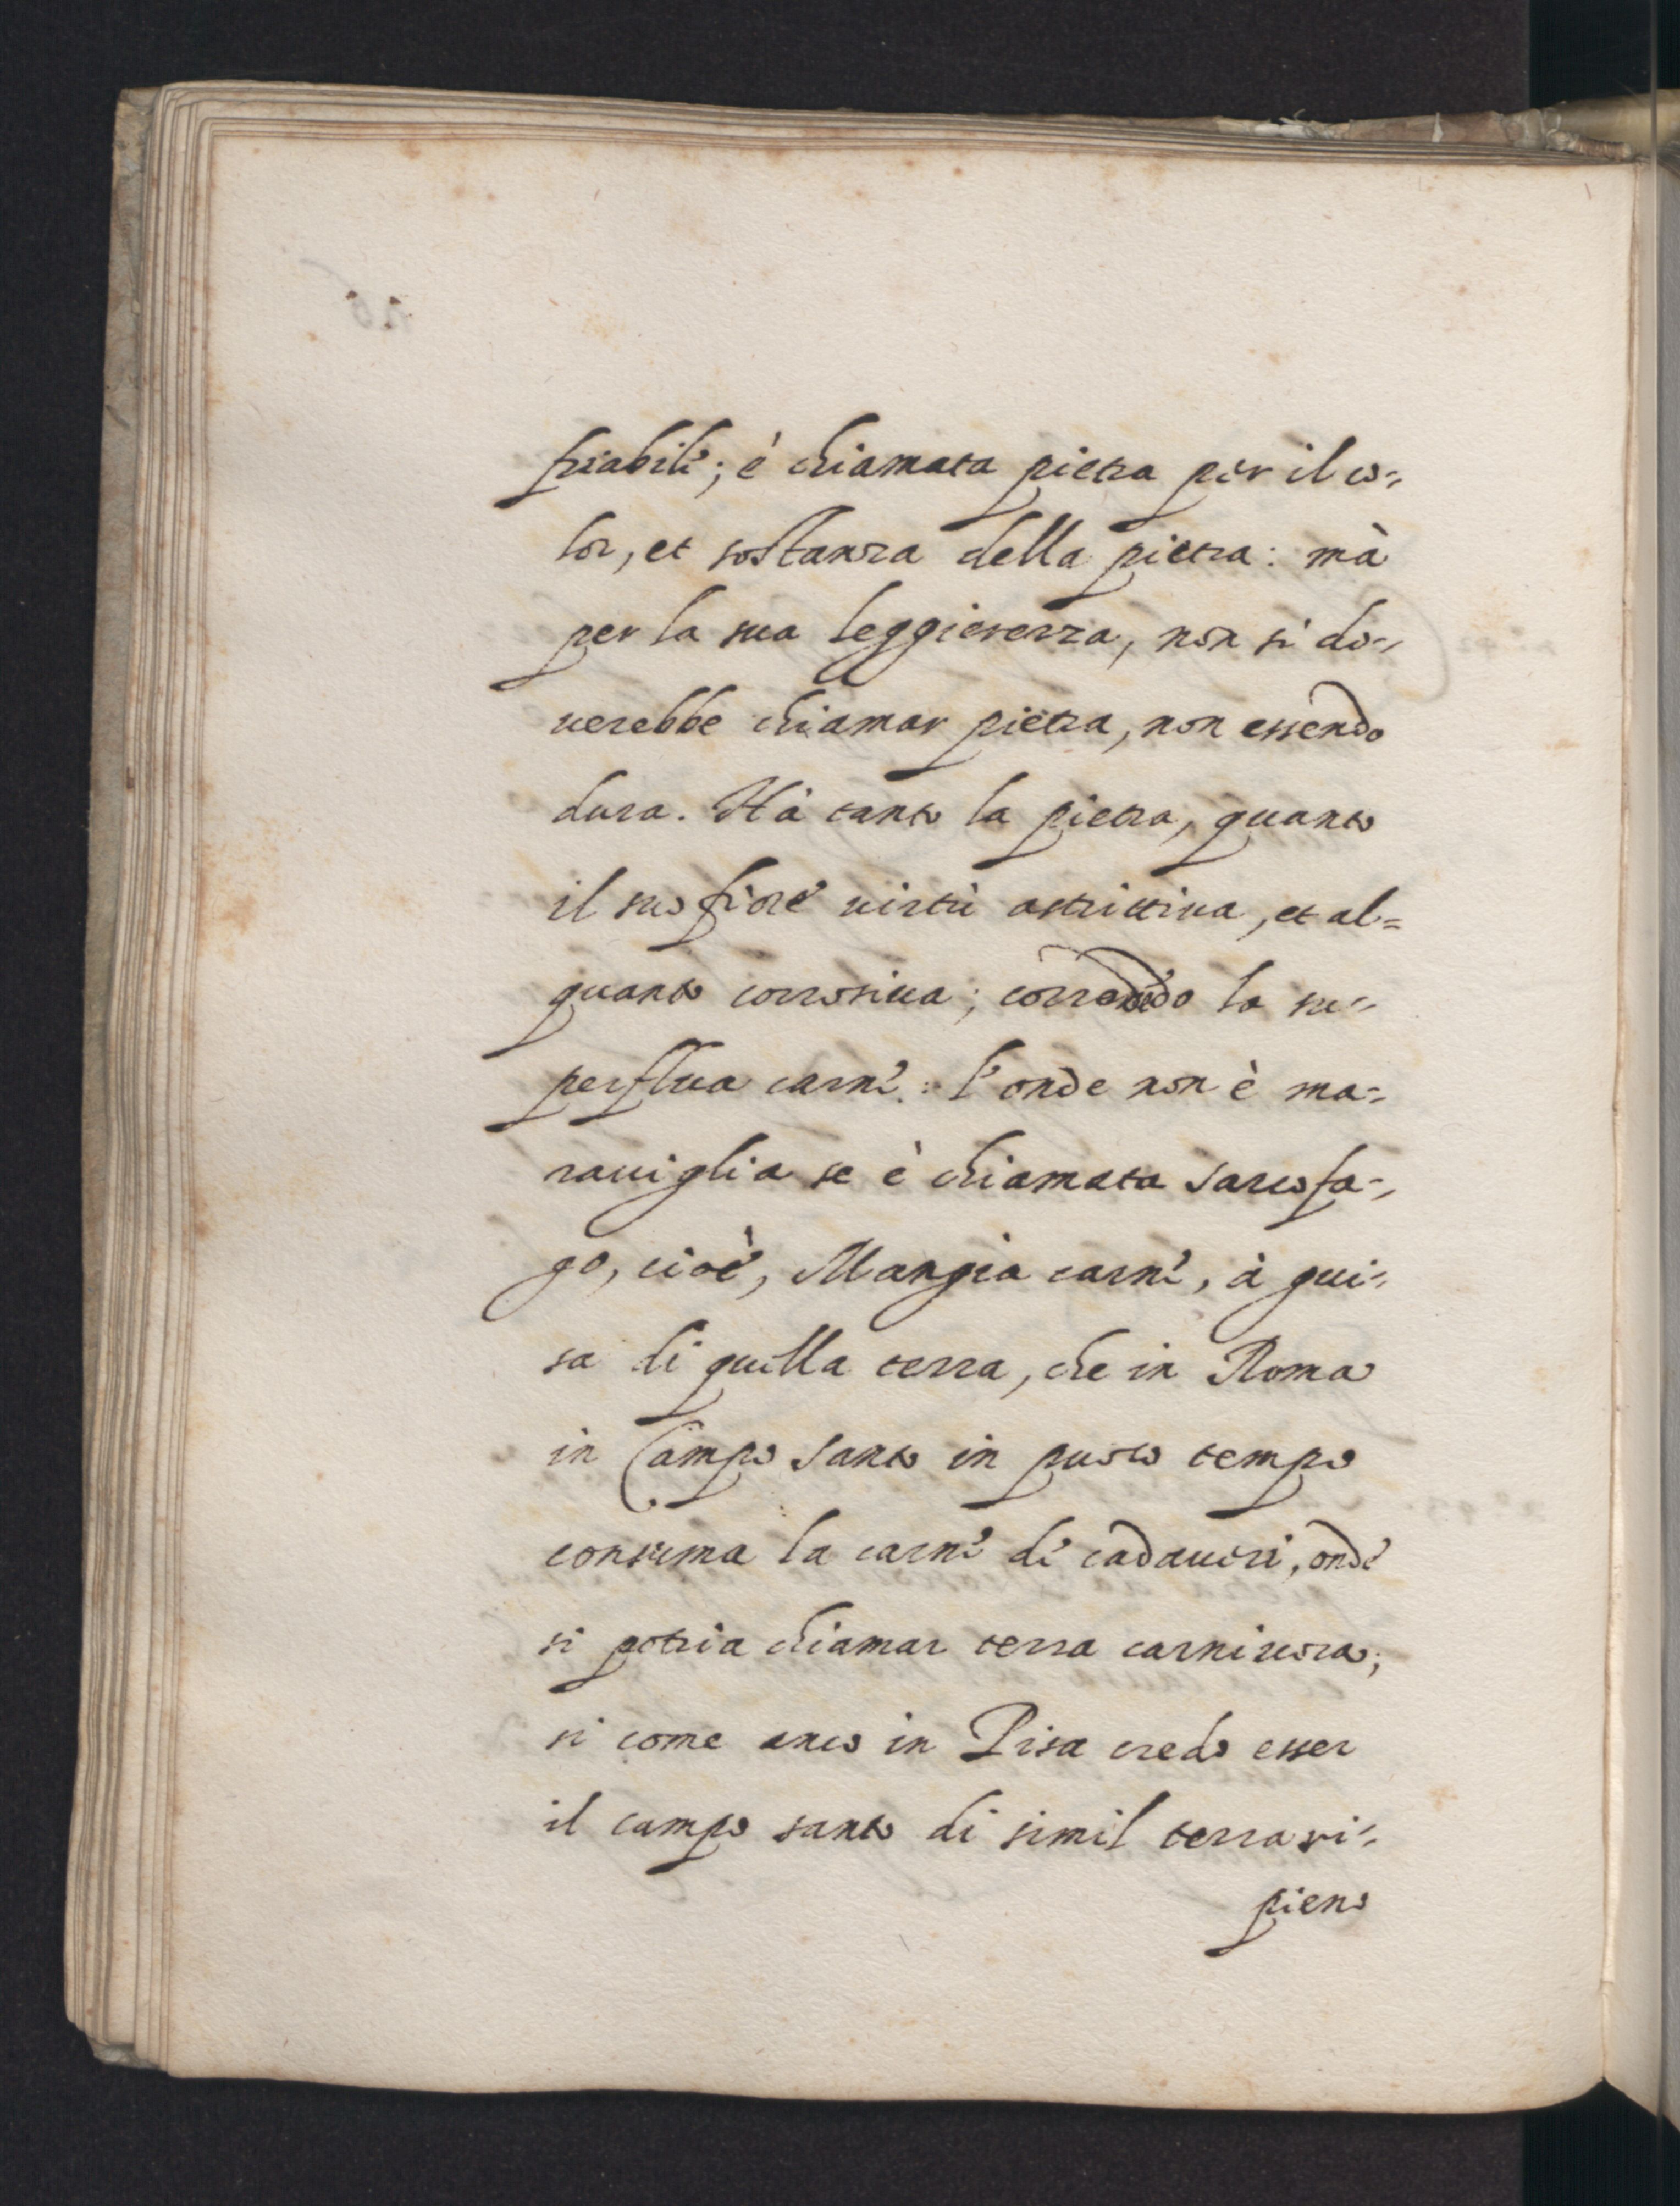 friabile; è chiamata pietra per il co=
lor, et sostanza della pietra: mà
per la sua leggierezza, non si do=
uerebbe chiamar pietra, non essendo
dura. Hà tanto la pietra, quanto
il suo fiore uirtù astrittiua, et al=
quanto corrosiua; corrodendo la su=
perflua carne: l'onde non è ma=
rauiglia se è chiamata sarcofa=
go, cioè, Mangia carne, à gui=
sa di quella terra, che in Roma
in Campo Santo in puoco tempo
consuma la carne de cadaueri, onde
si potria chiamar terra carniuora;
si come anco in Pisa credo esser
il campo santo di simil terra ri=
pieno